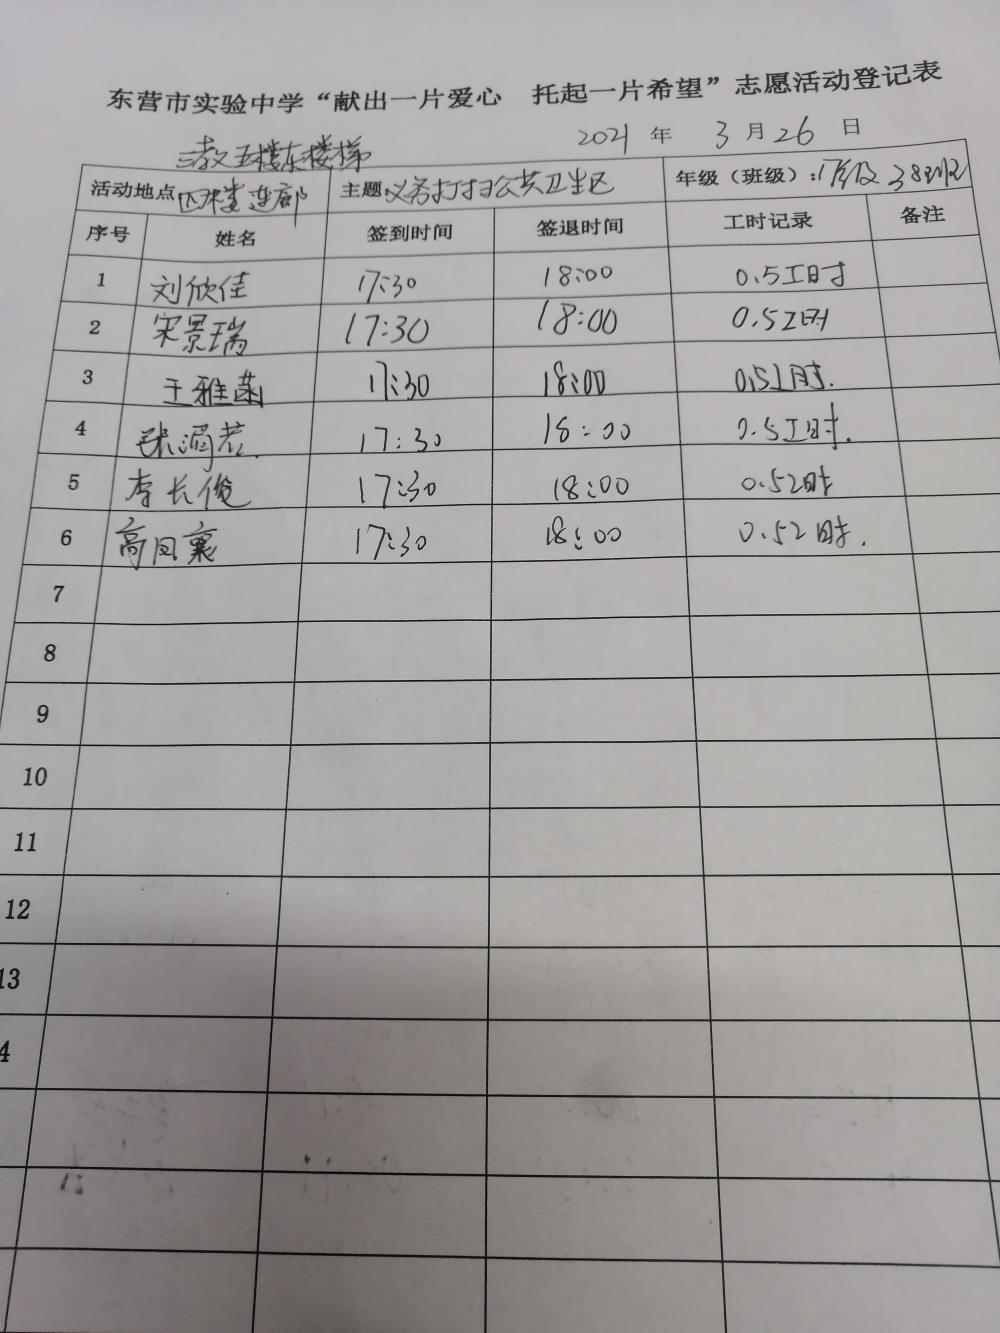 东营市实验中学“献出一片爱心 托起一片希望”志愿活动登记表
2021 年 3 月 26 日
三教五楼东楼梯
活动地点 四楼连廊 主题 义务打扫公共卫生区 年级（班级）：17级 38班
序号 姓名 签到时间 签退时间 工时记录 备注
1 刘欣佳 17:30 18:00 0.5工时
2 宋景瑞 17:30 18:00 0.5工时
3 王雅菡 17:30 18:00 0.5工时.
4 张涓若. 17:30 18:00 0.5工时.
5 李长俊 17:30 18:00 0.5工时
6 高囤襄 17:30 18:00 0.5工时.
7
8
9
10
11
12
13
4